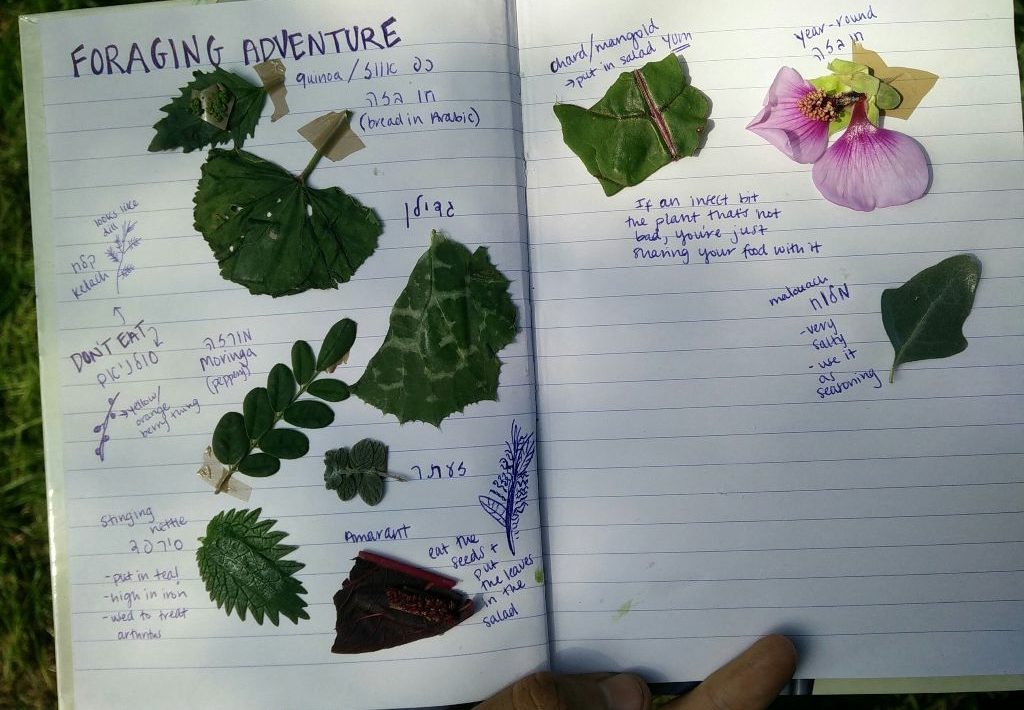 FORAGING ADVENTURE
quinoa / כפ אווז
חובזה
(bread in Arabic)
גדילן
looks like
dill
קלח
kelach
DON'T EAT
yellow/
orange
berry thing
Moringa
(peppery)
זעתר
Stinging
nettle
סירפד
-put in tea!
-high in iron
-used to treat
arthritus
Amarant
eat the
seeds +
put
the leaves
in the
salad
chard/mangold
→put in salad yum
year-round
חובזה
If an insect bit
the plant that's not
bad, you're just
sharing your food with it
malouach
מלוח
-very
salty
-use it
as
seasoning